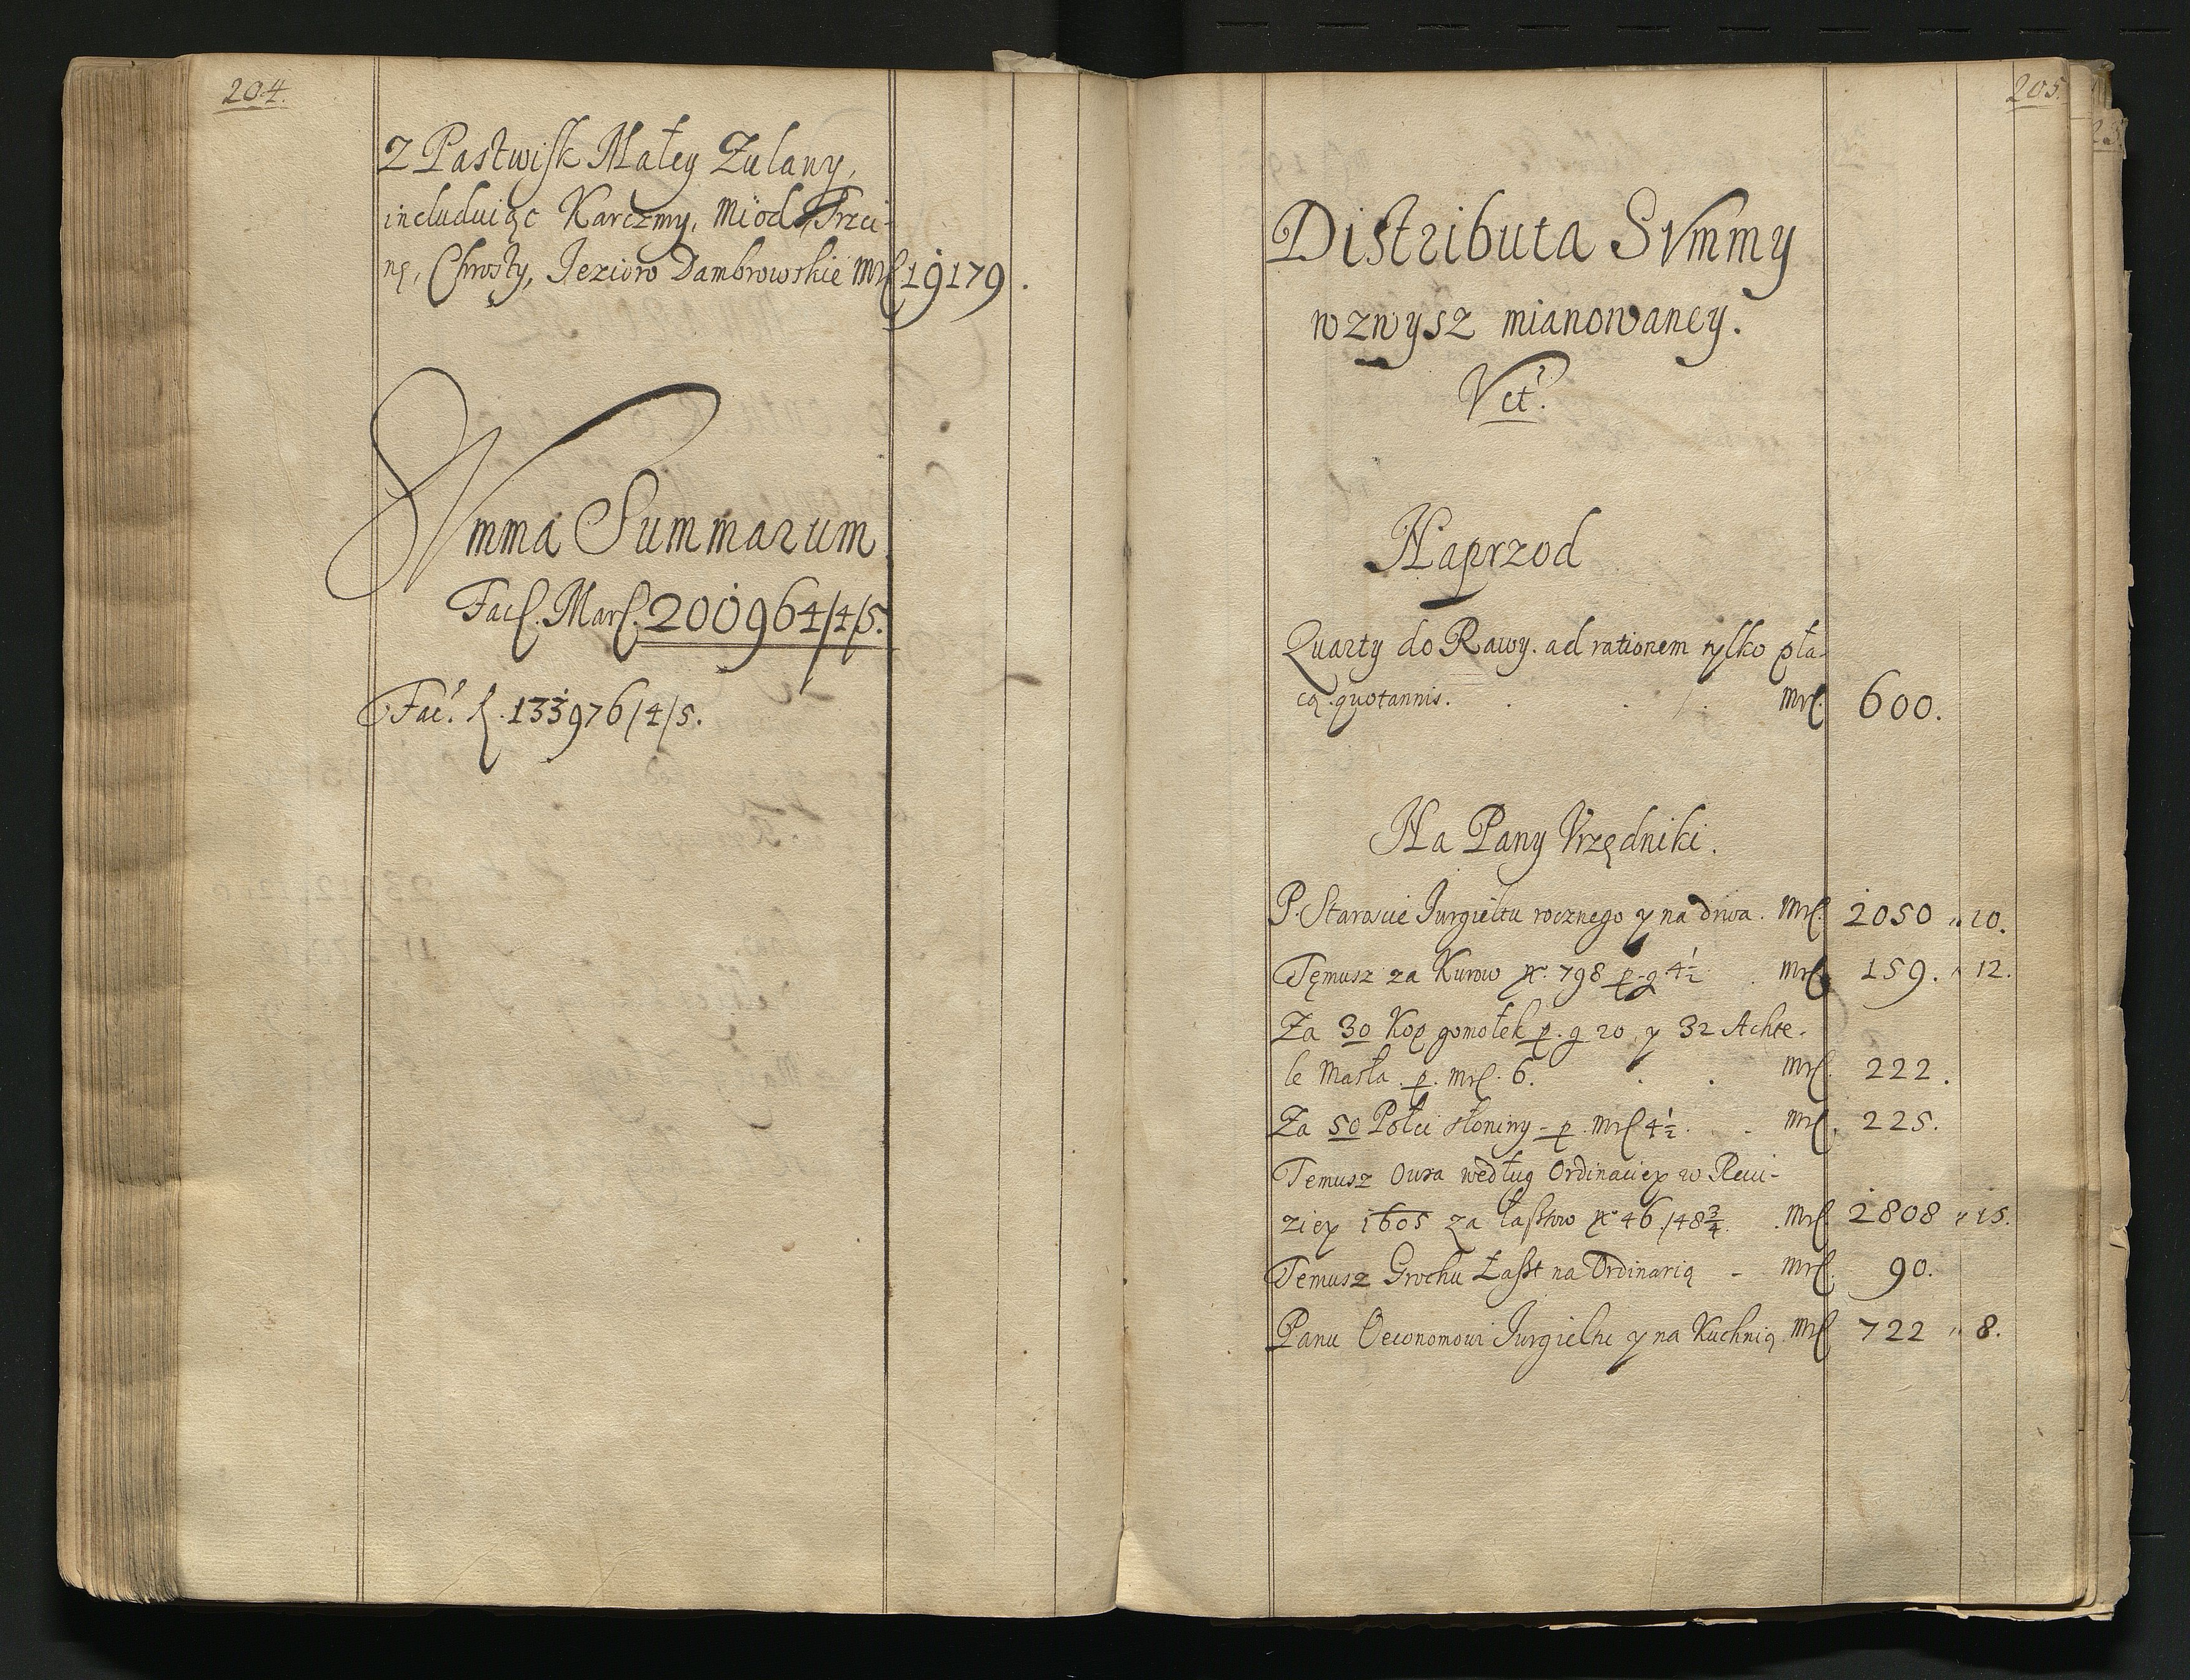 204.
Z Pastwisk Małey Zulany,
includuiąc Karczmy, Miod, Trzci-
nę, Chrosty, Iezioro Dambrowskie Mrſ 19179.
Summa Summarum
Facſ. Marſ. 200964/4/5.
Fac. ſ. 133976/4/5.
205.
Distributa Summy
wzwysz mianowaney.
Vct.
Naprzod
Quarty do Rawy. ad rationem tylko pła-
cą quotannis. Mrſ. 600.
Na Pany Vrzędniki.
P. Staroscie Iurgieltu rocznego y na drwa. Mrſ. 2050 " 10.
Tęmusz za Kurow N. 798 p. g 4½ Mrſ 159. " 12.
Za 30 Kop gomołek p. g 20. y 32 Achte-
le Masła. p. Mrſ. 6. Mrſ. 222.
Za 50 Połci słoniny - p. Mrſ 4½. Mrſ. 225.
Temusz Owsa według Ordinaciey w Rewi-
ziey 1605 za łasztow N. 46./48¾. Mrſ. 2808 " 15.
Temusz Grochu Łaszt na Ordinarią - Mrſ. 90.
Panu Oeconomowi Iurgieltu y na Kuchnią. Mrſ 722 " 8.